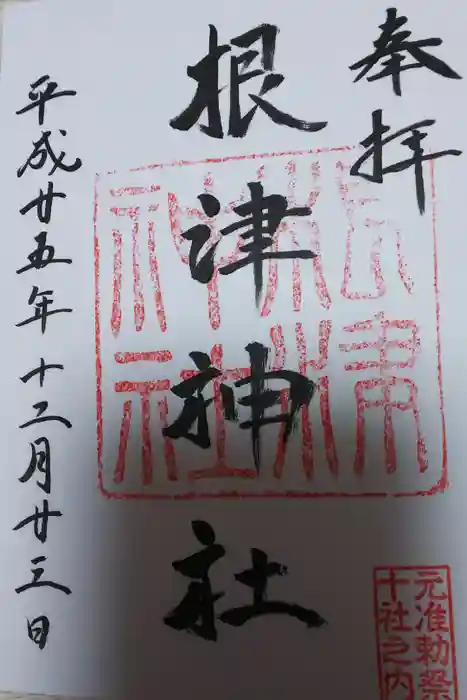 奉拝
根津神社
平成廿五年十二月廿三日
元准勅祭
十社之内